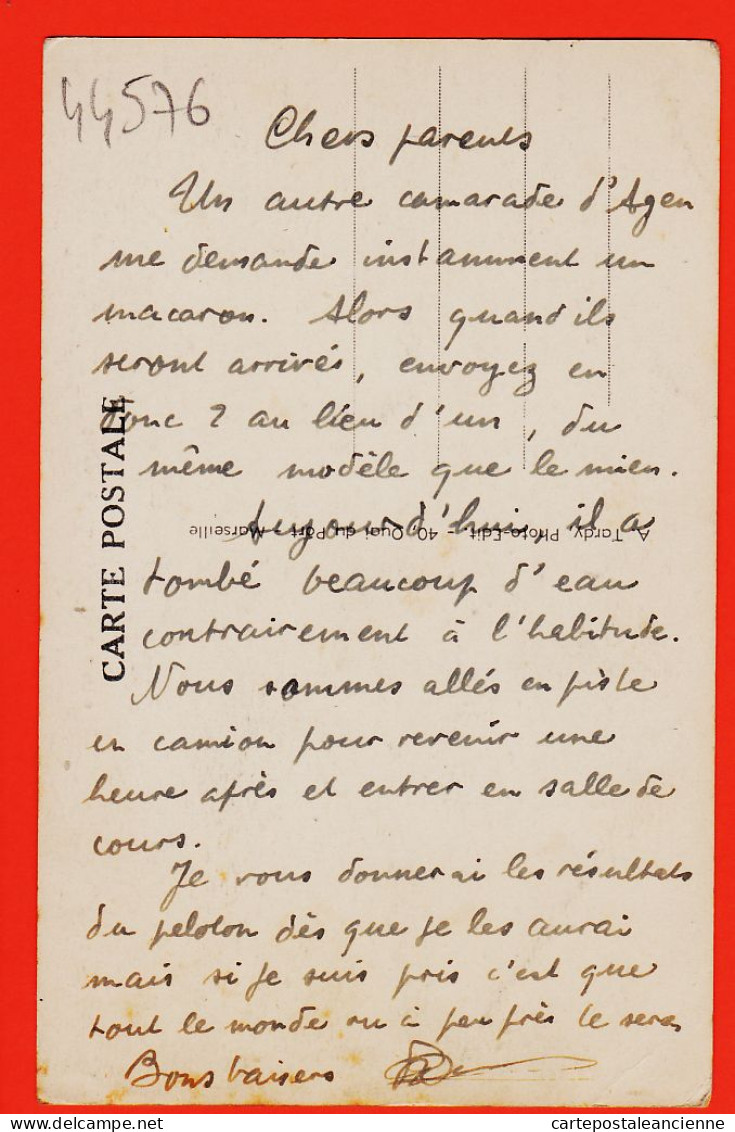 44576
Chers parents
Un autre camarade d'Agen
me demande instamment un
macaron. Alors quand ils
seront arrivés, envoyez en
donc 2 au lieu d'un, du
même modèle que le mien.
Aujourd'hui, il a
A. Tardy, Photo-Edit. - 40, Quai du Port - Marseille
tombé beaucoup d'eau
contrairement à l'habitude.
CARTE POSTALE
Nous sommes allés en piste
en camion pour revenir une
heure après et entrer en salle de
cours.
Je vous donnerai les résultats
du peloton dès que je les aurai
mais si je suis pris c'est que
tout le monde ou à peu près le sera
Bons baisers
cartepostaleancienne